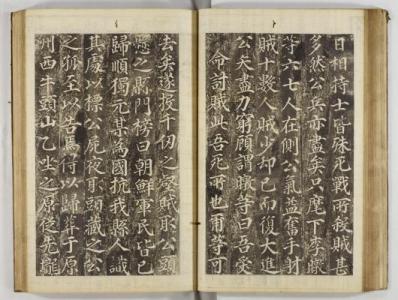 日相持士皆殊死戰所殺賊甚
多然公兵亦盡矣只麾下李
等六七人在側公氣益奮手射
賊十數人賊少却已而復大進
公矢盡力窮顧謂等曰吾受
命討賊此吾死所也爾等可
去矣遂投千仞之壑賊取公頭
懸之縣門榜曰朝鮮軍民皆已
歸順獨元某為國抗我縣人識
其處以標公屍夜取頭藏之公
之孤至以告焉得以歸葬于原
州西牛頭山乙坐之原從先